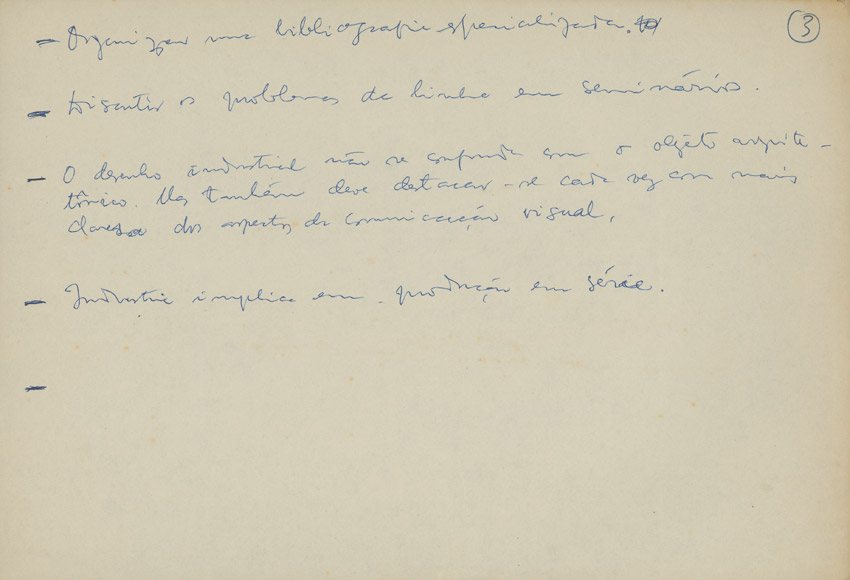 ③
- Organizar uma bibliografia especializada.
- Discutir os problemas da linha em seminários.
- O desenho industrial não se confunde com o objeto arquite-
tônico. Mas também deve destacar-se cada vez com mais
clareza dos aspectos da comunicação visual.
- Industria implica em produção em série.
-